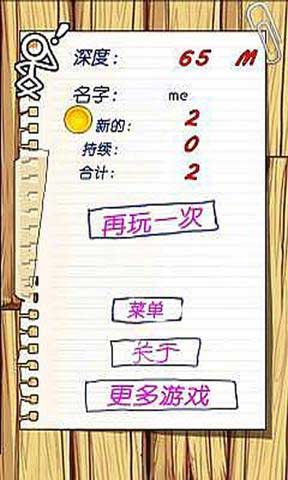 深度： 65 M
名字： me
新的： 2
持续： 0
合计： 2
再玩一次
菜单
关于
更多游戏